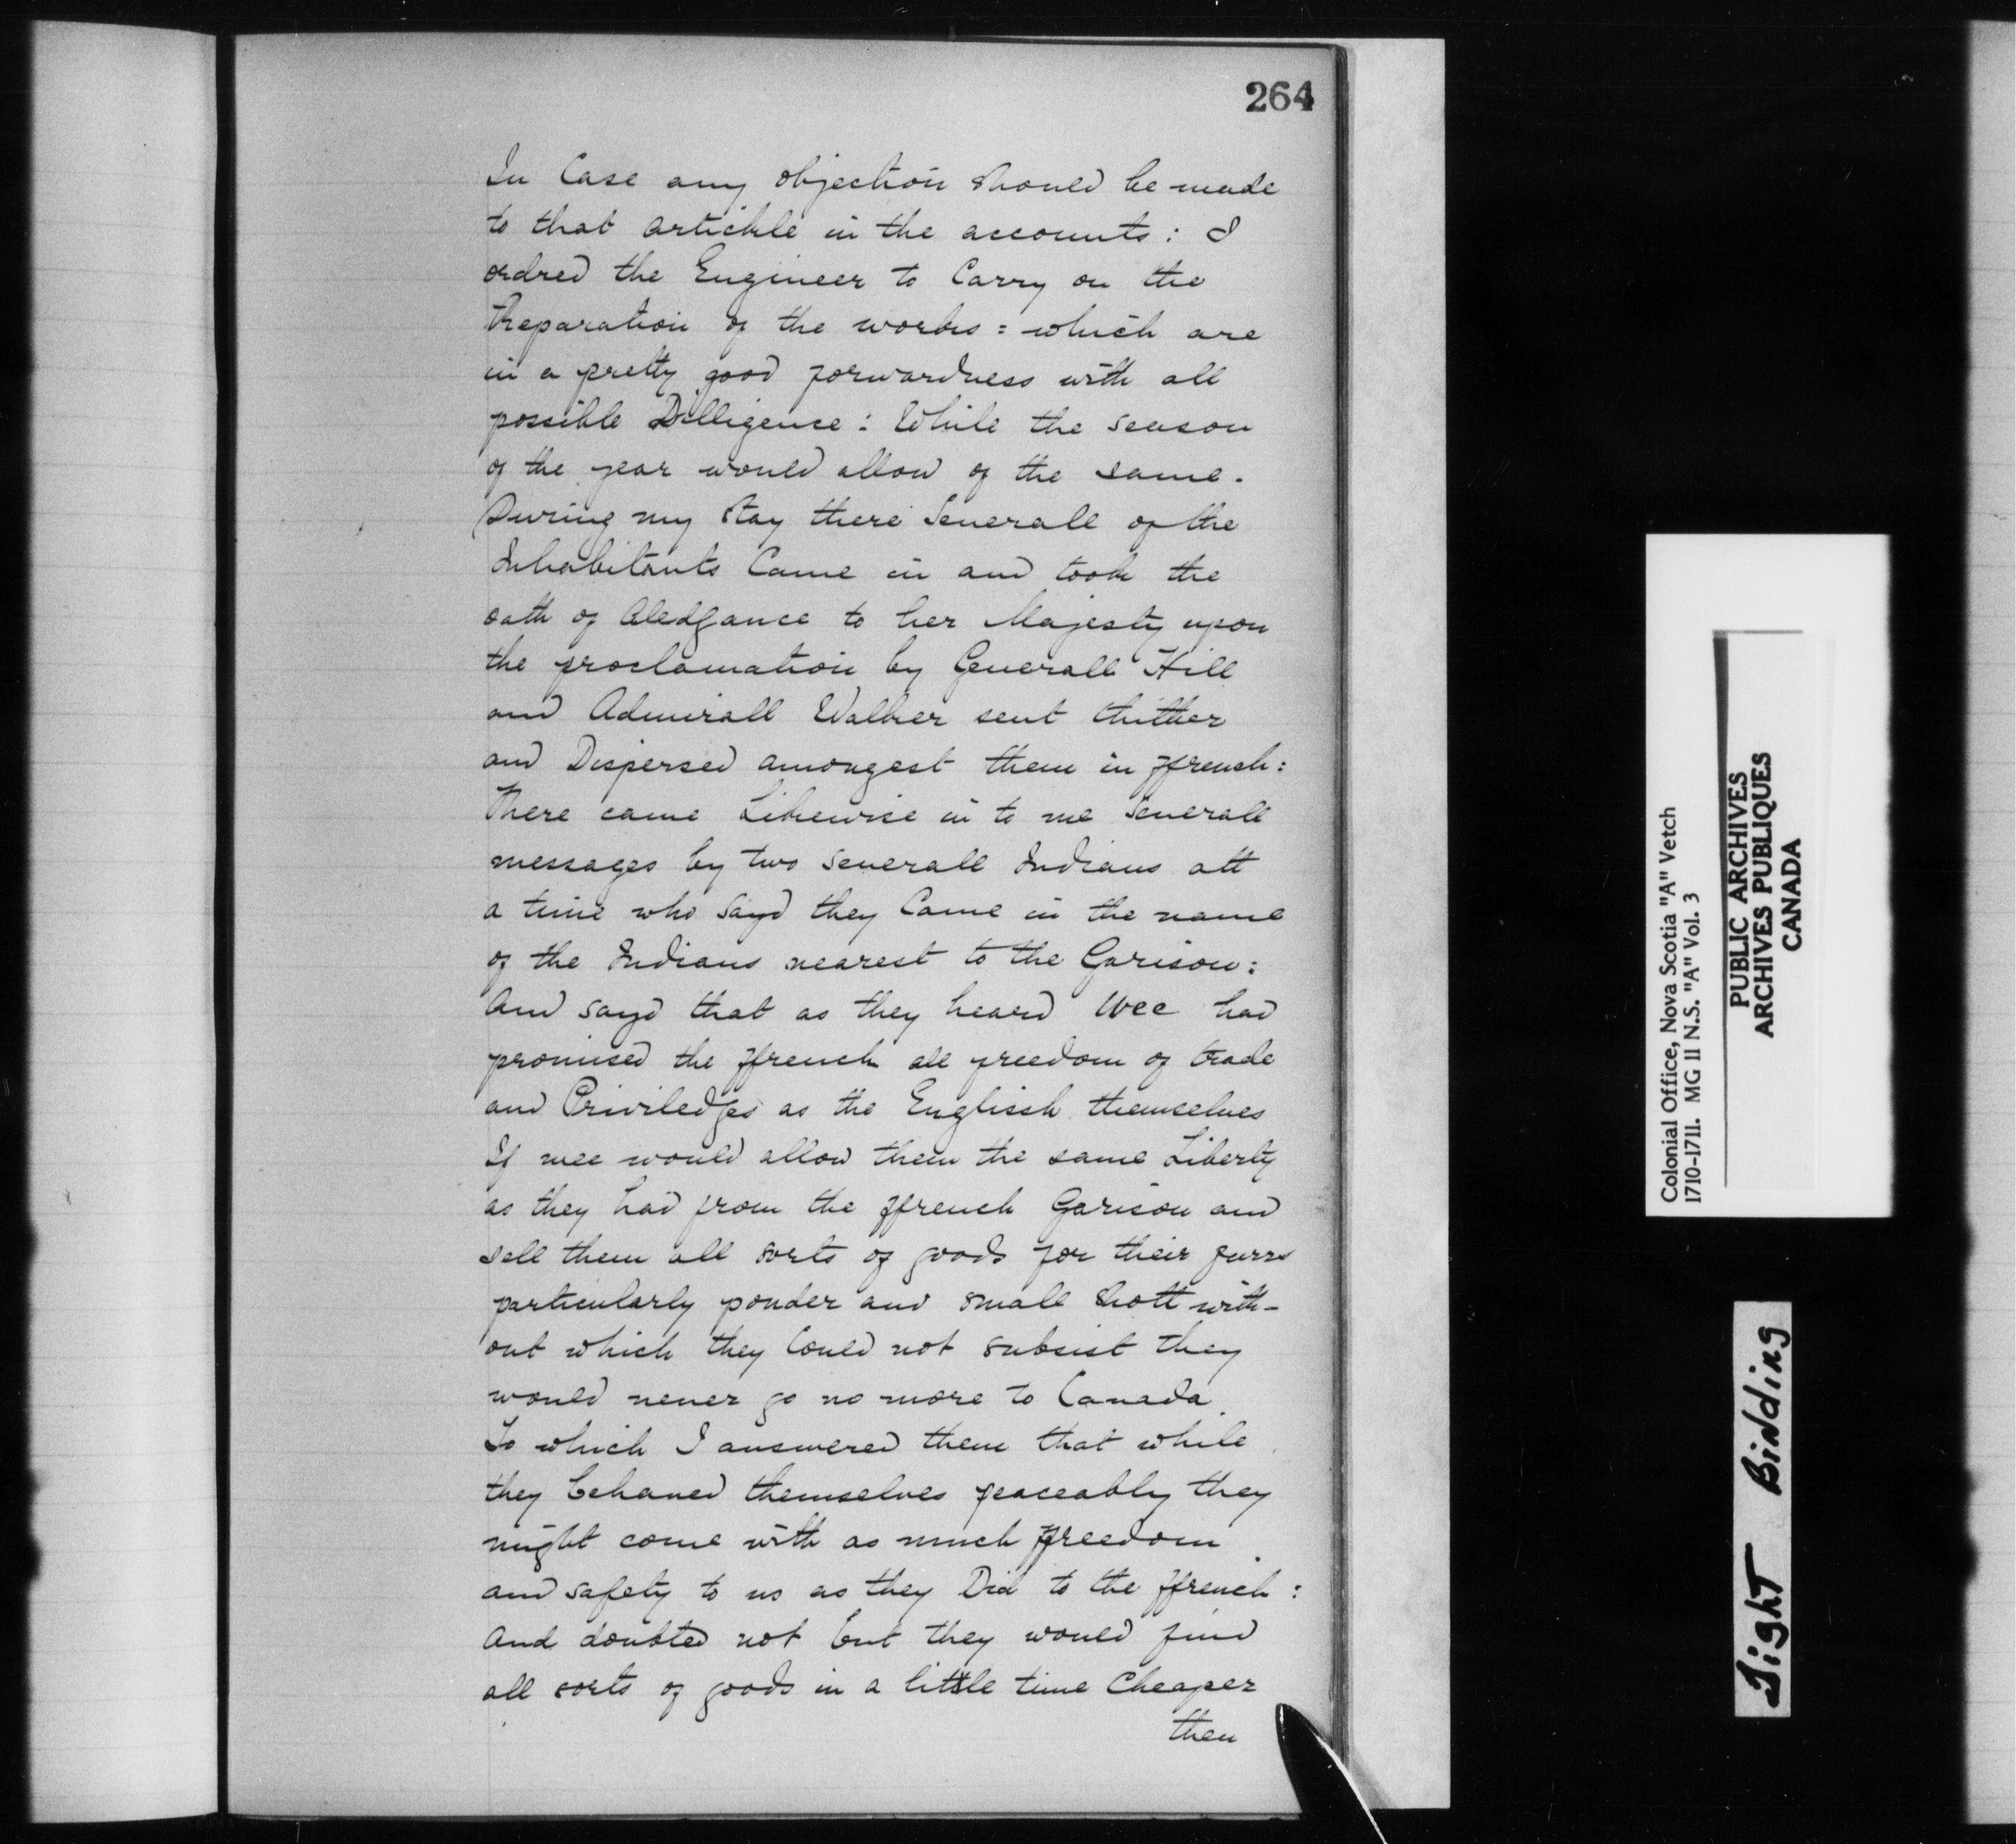 264
In Case any objection should be made
to that artickle in the accounts: I
ordred the Engineer to Carry on the
Reparation of the works: which are
in a pretty good forwardness with all
possible Dilligence: While the season
of the year would allow of the same.
During my stay there Severall of the
Inhabitants Came in and took the
oath of Aledgance to her Majesty upon
the proclamation by Generall Hill
and Admirall Walker sent thither
and Dispersed amongest them in ffrench:
There came Likewise in to me severall
messages by two severall Indians att
a time who sayd they Came in the name
of the Indians nearest to the Garison:
And sayd that as they heard Wee had
promised the ffrench all freedom of trade
and Priviledges as the Englissh themselves
If wee would allow them the same Liberty
as they had from the ffrench Garison and
sell them all sorts of goods for their furrs
particularly pouder and small shott with-
out which they Could not subsist they
would never go no more to Canada.
To which I answered them that while
they behaved themselves peaceably they
might come with as much ffreedom
and safety to us as they Did to the ffrench:
And doubted not but they would find
all sorts of goods in a little time Cheaper
then
Colonial Office, Nova Scotia "A" Vetch
1710-1711. MG 11 N.S. "A" Vol. 3
PUBLIC ARCHIVES
ARCHIVES PUBLIQUES
CANADA
Tight Binding